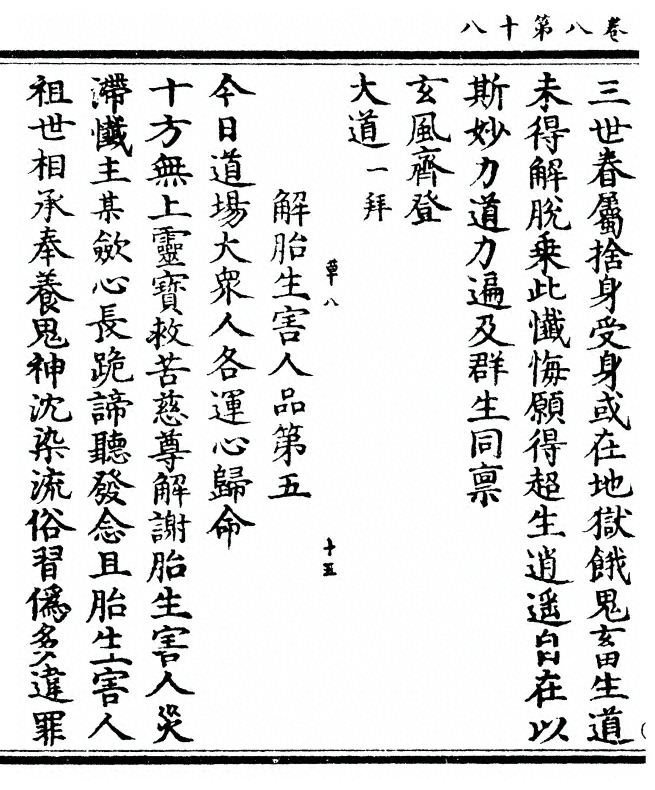 卷八第十八
三世眷屬捨身受身或在地獄餓鬼畜生道
未得解脫乗此懺悔願得超生逍遥自在以
斯妙力道力遍及群生同禀
玄風齊登
大道一拜
覃八
十五
解胎生害人品第五
今日道場大衆人各運心歸命
十方無上靈寶救苦慈尊解謝胎生害人災
滯懺主某歛心長跪諦聽發念且胎生害人
祖世相承奉養鬼神沈染流俗習僞多違罪